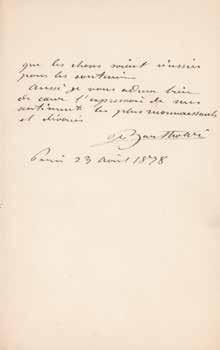 que les choses soient réussies
pour les soutenir
Aussi je vous adresse bien
de cœur l'expression de mes
sentiments les plus reconnaissants
et dévoués
Bartholdi
Paris 23 Août 1878